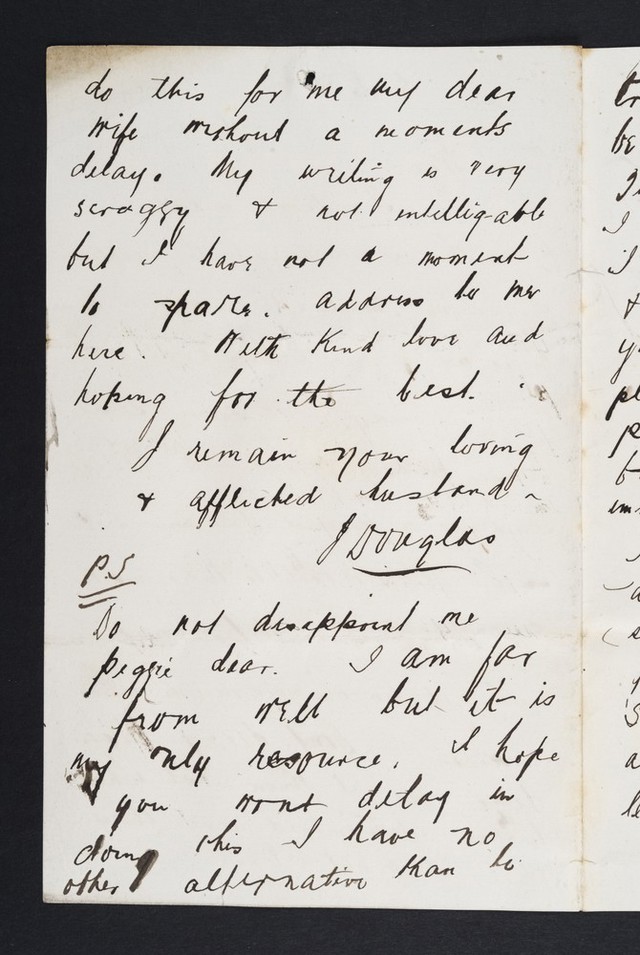 do this for me my dear
wife without a moments
delay. My writing is very
scraggy & not intelligable
but I have not a moment
to spare. address to me
here. With kind love and
hoping for the best.
I remain your loving
& afflicted husband
J Douglas
P.S
Do not disappoint me
peggie dear. I am far
from well but it is
my only resource. I hope
you wont delay in
doing this I have no
other alternative than to